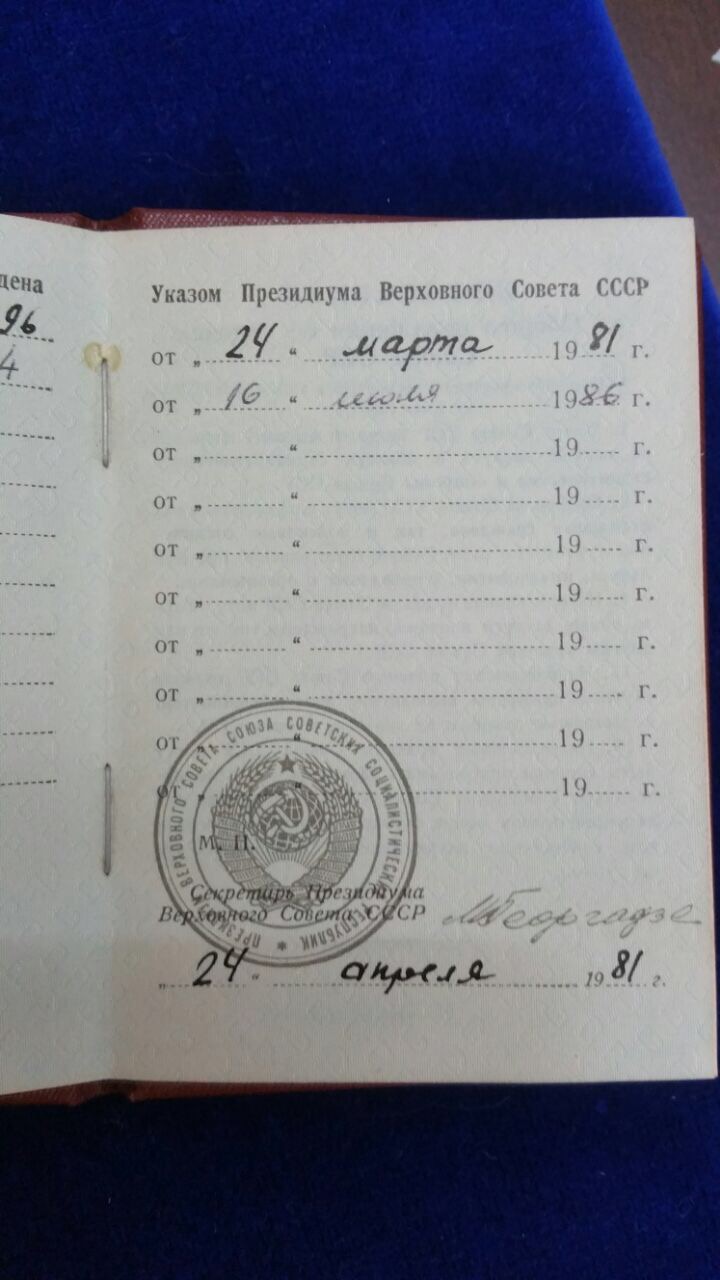 дена
96
4
Указом Президиума Верховного Совета СССР
от „ 24 “ марта 1981 г.
от „ 16 “ июля 1986 г.
от „ “ 19 г.
от „ “ 19 г.
от „ “ 19 г.
от „ “ 19 г.
от „ “ 19 г.
от „ “ 19 г.
от „ “ 19 г.
от „ “ 19 г.
ПРЕЗИДИУМ ВЕРХОВНОГО СОВЕТА СОЮЗА СОВЕТСКИХ СОЦИАЛИСТИЧЕСКИХ РЕСПУБЛИК *
М. П.
Секретарь Президиума
Верховного Совета СССР МГеоргадзе
„ 24 “ апреля 1981 г.